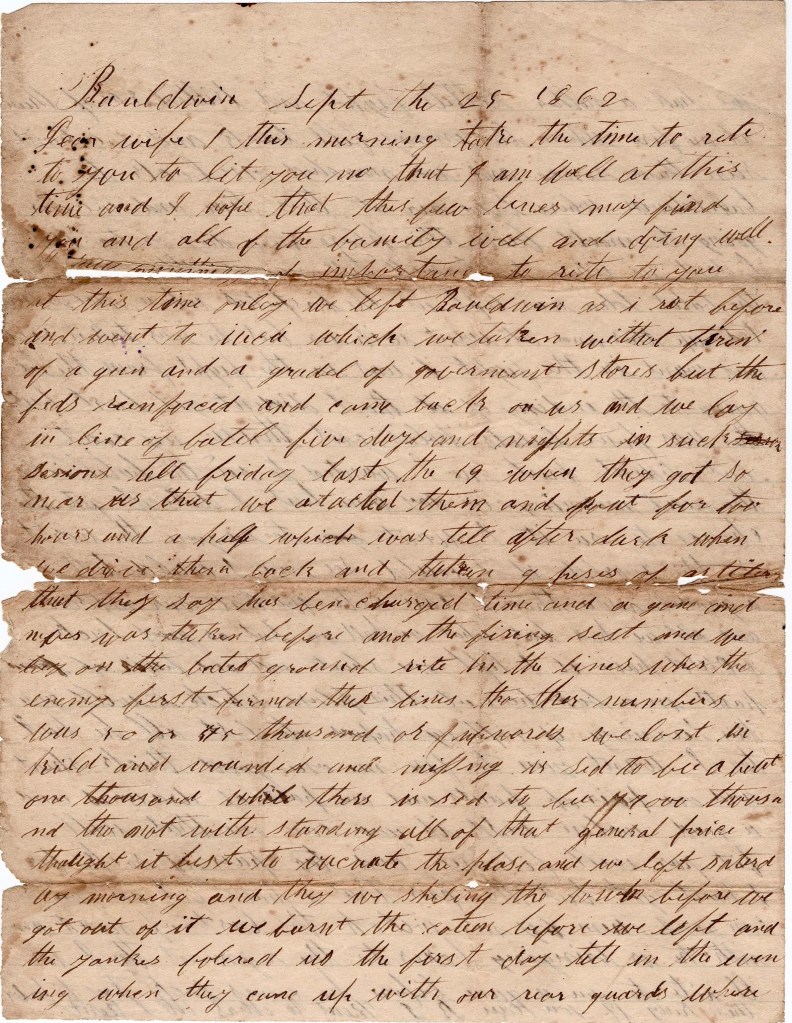 Bauldwin Sept the 25 1862
Dear wife I this morning take the time to rite
to you to lit you no that I am Well at this
time and I hope that this few lines may find
you and all of the family well and doing well.
of importance to rite to you
at this time only we left Bauldwin as i rot before
and went to iuca which we taken without firin
of a gun and a gradel of goverment stores but the
feds reinforced and came back on us and we lay
in line of batel five days and nights in suck
sesions tell friday last the 19 when they got so
near us that we atacted them and fout for too
hours and a half which was tell after dark when
we drove them back and taken 9 peses of
that they say has ben charged time and a gane and
never was taken before and the firing sest and we
lay on the batel ground rite in the lines wher the
enemy first formed ther lines tho ther numbers
was 40 or 45 thousand or upwords we lost in
kild and wounded and missing is sed to bee a bout
one thousand while thers is sed to bee thousa
nd tho not with standing all of that general price
thought it best to vacuate the plase and we left saterd
ay morning and they we sheling the town before we
got out of it we burnt the coten before we left and
the yankes folered us the first day tell in the even
ing when they came up with our rear guards where